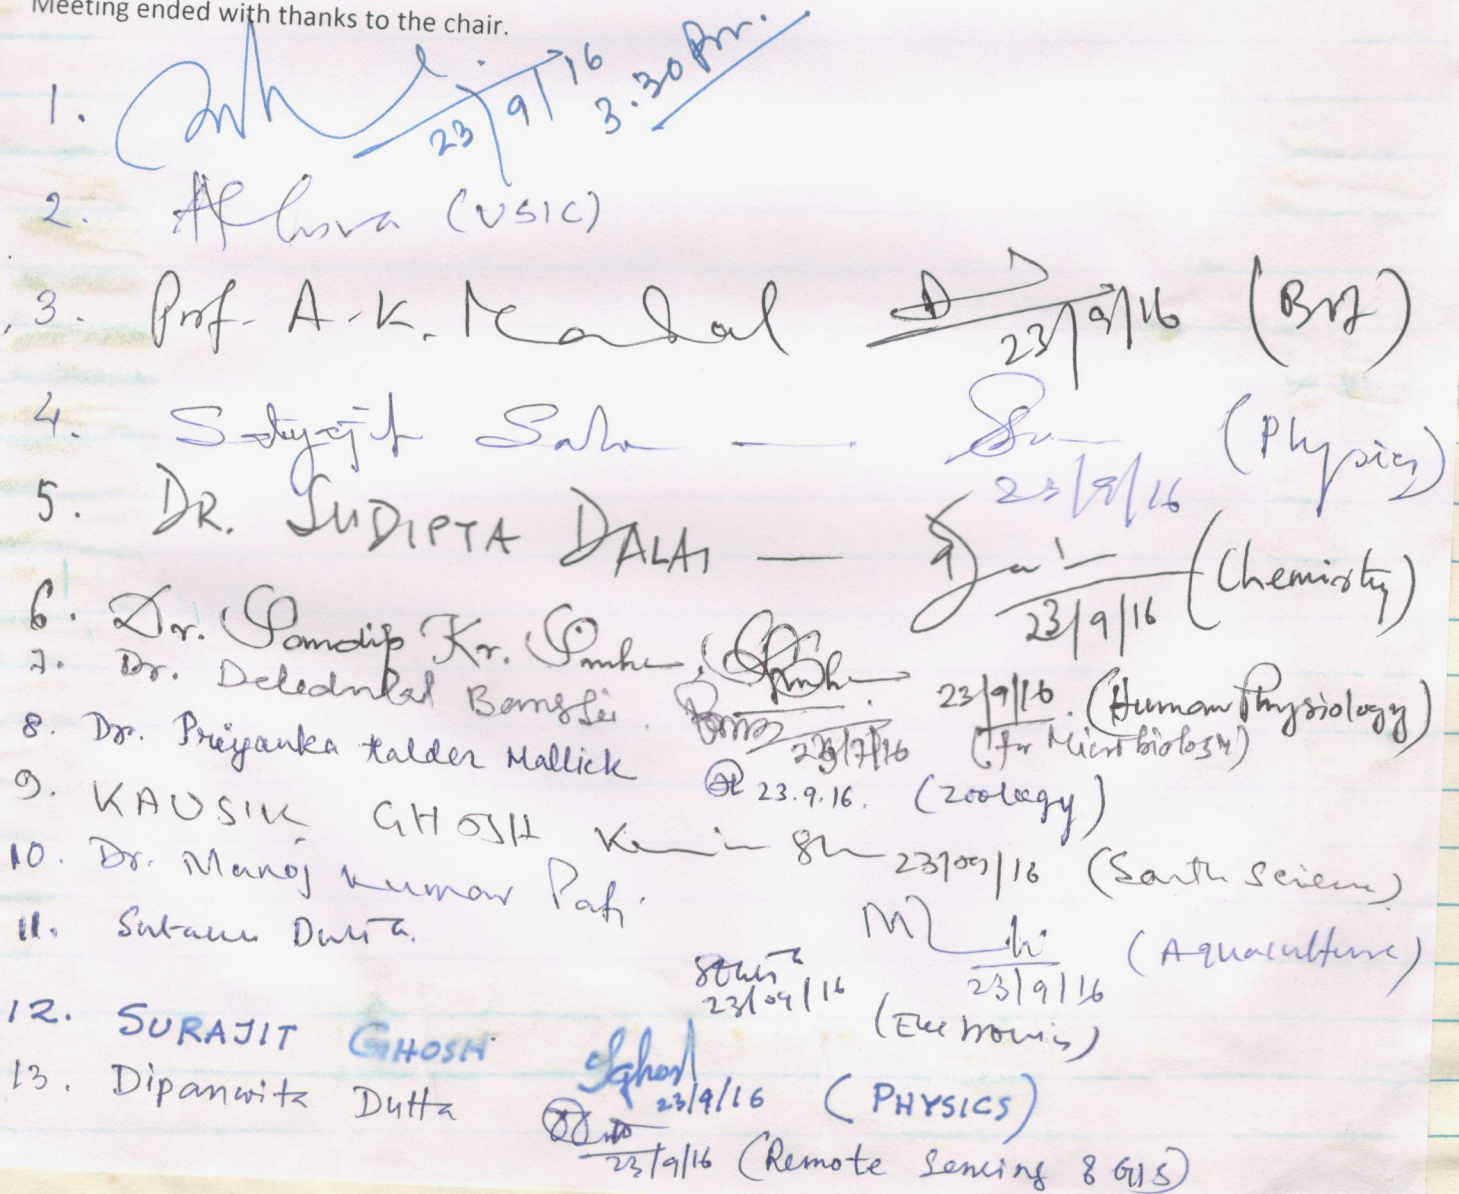 Meeting ended with thanks to the chair.
1. 23/9/16 3.30 Pm.
2. (USIC)
3. Prof. A. K. Mandal 23/9/16
4. Satyajit Saha — 23/9/16 (Physics)
5. DR. SUDIPTA DALAI — 23/9/16 (Chemistry)
6. Dr. Sandip Kr. Sinha, 23/9/16. (Human Physiology)
7. Dr. (for Microbiology)
8. Dr. Priyanka Halder Mallick 23.9.16. (Zoology)
9. KAUSIK GHOSH 23/09/16 (Earth Science)
10. Dr. Manoj Kumar Pati 23/9/16 (Aquaculture)
11. Dutta. 23/09/16 (Electronics)
12. SURAJIT GHOSH SGhosh 23/9/16 (PHYSICS)
13. Dipanwita Dutta 23/9/16 (Remote Sensing & GIS)